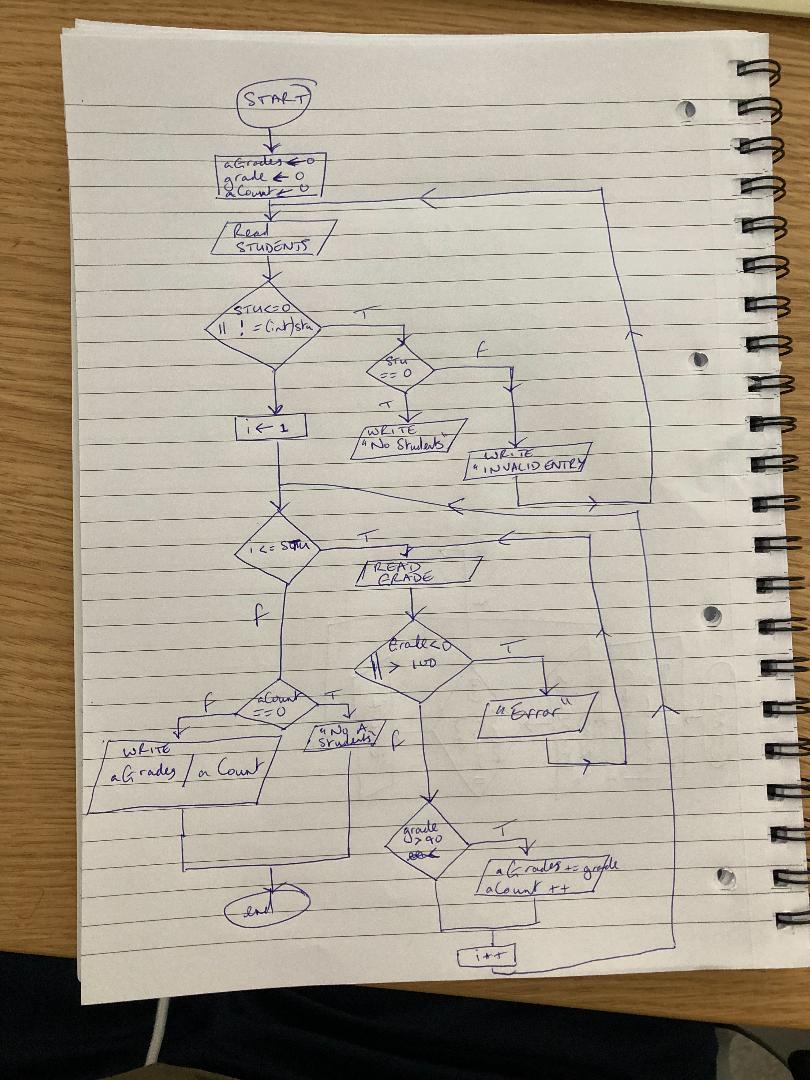 START
aGrades ← 0
grade ← 0
aCount ← 0
Read
STUDENTS
STU<=0
|| ! = (int)stu
T
Stu
== 0
F
T
WRITE
"No Students"
WRITE
"INVALID ENTRY
i ← 1
i <= Stu
T
READ
GRADE
F
Grade<0
|| > 100
T
"Error"
F
aCount
==0
F
T
"No A
Students"
WRITE
aGrades / a Count
grade
>90
T
aGrades += grade
aCount ++
end
i++